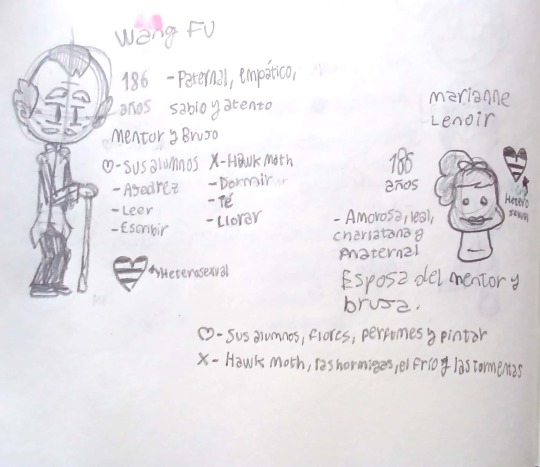 Wang Fu
186 años
- Paternal, empático,
sabio y atento
Mentor y Brujo
♡- Sus alumnos
- Ajedrez
- Leer
- Escribir
X- Hawk Moth
- Dormir
- Té
- Llorar
Heterosexual
marianne
Lenoir
185
años
Heterosexual
- Amorosa, leal,
charlatana y
maternal
Esposa del mentor y
bruja.
♡- Sus alumnos, flores, perfumes y pintar
X- Hawk Moth, las hormigas, el frío y las tormentas